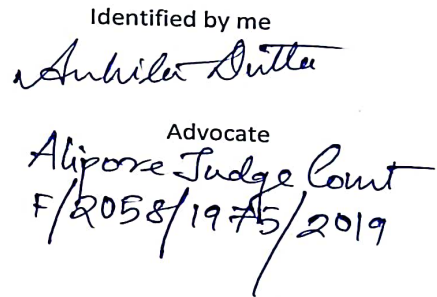 Identified by me
Ankita Dutta
Advocate
Alipore Judge Court
F/2058/1975/2019